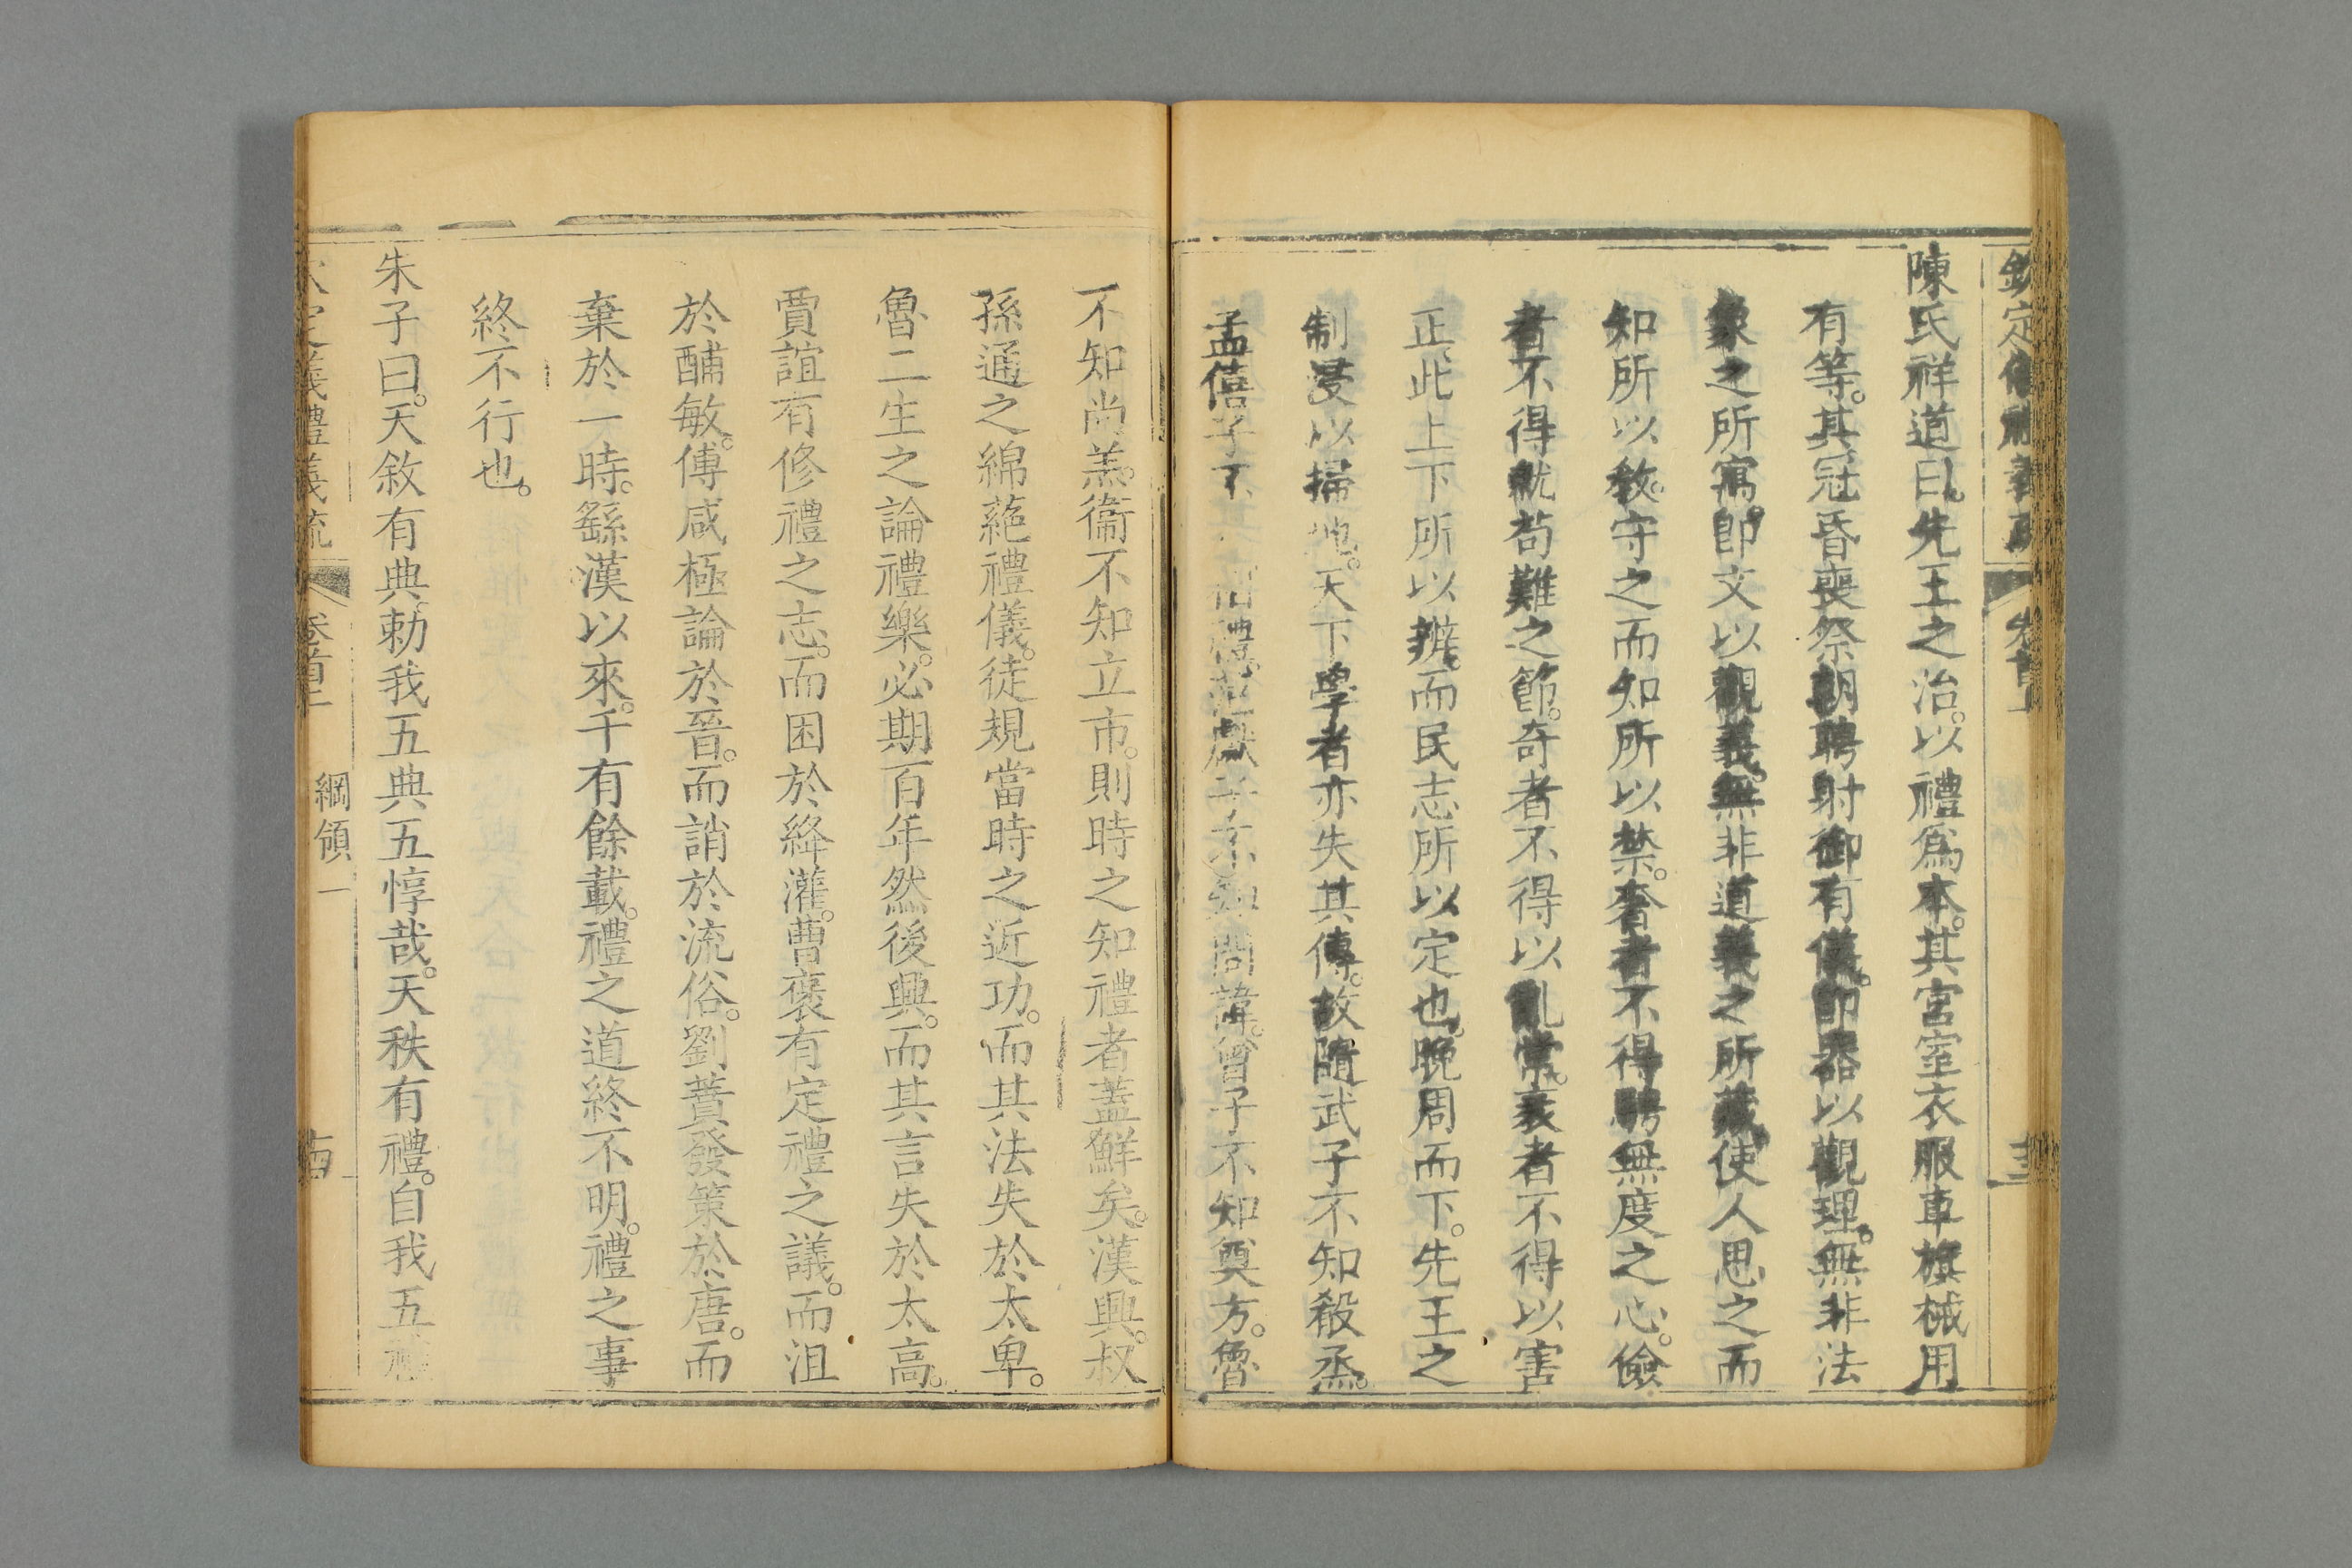 欽定儀禮義疏 卷首上
陳氏祥道曰先王之治以禮爲本其宮室衣服車旗械用
有等其冠昏喪祭朝聘射御有儀卽器以觀理無非法
象之所寓卽文以觀義無非道義之所藏使人思之而
知所以敎守之而知所以禁奢者不得騁無度之心儉
者不得就苟難之節奇者不得以亂常衺者不得以害
正此上下所以辨而民志所以定也晚周而下先王之
制寖以掃地天下學者亦失其傳故隨武子不知殽烝
孟僖子不 相禮范獻子不知問諱曾子不知奠方魯
不知尚羔衞不知立市則時之知禮者蓋鮮矣漢興叔
孫通之綿蕝禮儀徒規當時之近功而其法失於太卑
魯二生之論禮樂必期百年然後興而其言失於太高
賈誼有修禮之志而困於絳灌曹褒有定禮之議而沮
於酺敏傅咸極論於晉而誚於流俗劉蕡發策於唐而
棄於一時繇漢以來千有餘載禮之道終不明禮之事
終不行也
朱子曰天敘有典勅我五典五惇哉天秩有禮自我五禮
欽定儀禮義疏 卷首上 綱領一